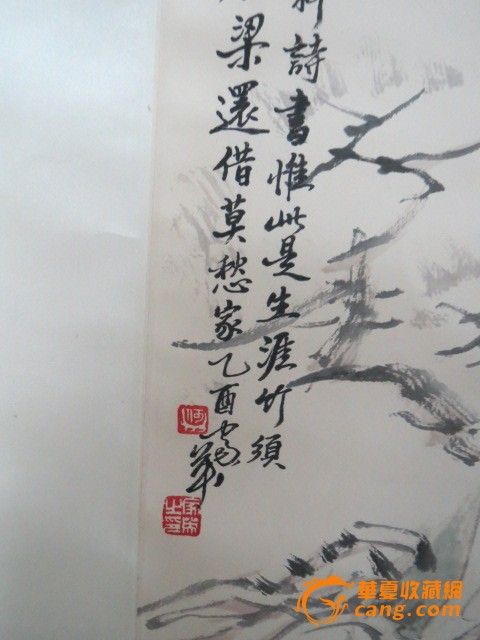 詩書惟此是生涯竹須
梁還借莫愁家乙酉
華夏收藏網
cang.com